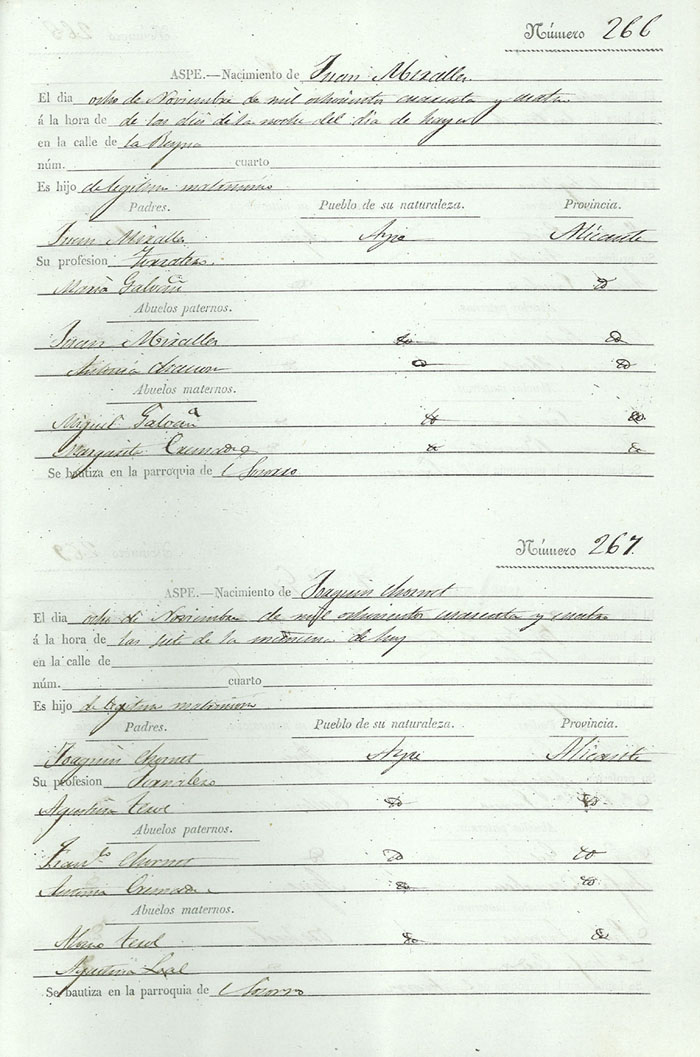 Número 266
ASPE.—Nacimiento de Juan Miralles
El dia ocho de Noviembre de mil ochocientos cuarenta y cuatro
á la hora de de las dies de la noche del dia de hayer
en la calle de la Reyna
núm. cuarto
Es hijo de legitimo matrimonio
Padres. Pueblo de su naturaleza. Provincia.
Juan Miralles Aspe Alicante
Su profesion Jornalero
Maria Galvañ do
Abuelos paternos.
Juan Miralles do do
Antonia do do
Abuelos maternos.
Miguel Galvañ do do
Margarita Cremades do do
Se bautiza en la parroquia de Socorro
Número 267.
ASPE.—Nacimiento de Joaquin Chornet
El dia ocho de Noviembre de mil ochocientos cuarenta y cuatro
á la hora de las siete de la mañana de hoy
en la calle de
núm. cuarto
Es hijo de legitimo matrimonio
Padres. Pueblo de su naturaleza. Provincia.
Joaquin Chornet Aspe Alicante
Su profesion Jornalero
Agustina Terol do do
Abuelos paternos.
Franco Chornet do do
Antonia Cremades do do
Abuelos maternos.
Terol do do
Agustina Leal
Se bautiza en la parroquia de Socorro